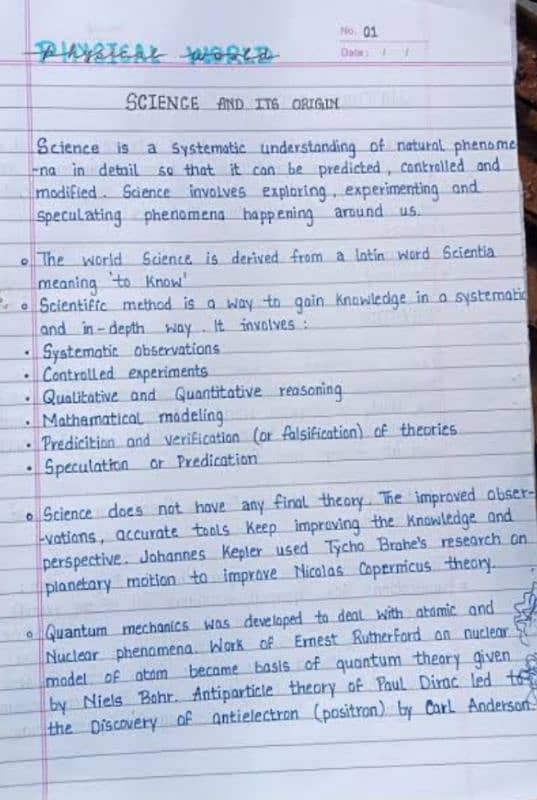 No. 01
Date: / /
PHYSICAL WORLD
Physical world
SCIENCE AND ITS ORIGIN
Science is a systematic understanding of natural phenome
-na in detail so that it can be predicted, controlled and
modified. Science involves exploring, experimenting and
speculating phenomena happening around us.
The world Science is derived from a latin word Scientia
meaning 'to Know'
Scientific method is a way to gain knowledge in a systematic
and in-depth way. It involves :
• Systematic observations
• Controlled experiments
• Qualitative and Quantitative reasoning
• Mathamatical modeling
• Predicition and verification (or falsification) of theories
• Speculation or Predication
Science does not have any final theory. The improved obser-
-vations, accurate tools keep improving the knowledge and
perspective. Johannes Kepler used Tycho Brahe's research on
planetary motion to improve Nicolas Copernicus theory.
Quantum mechanics was developed to deal with atomic and
Nuclear phenomena. Work of Ernest Rutherford on nuclear
model of atom became basis of quantum theory given
by Niels Bohr. Antiparticle theory of Paul Dirac led to
the Discovery of antielectron (positron) by Carl Anderson.